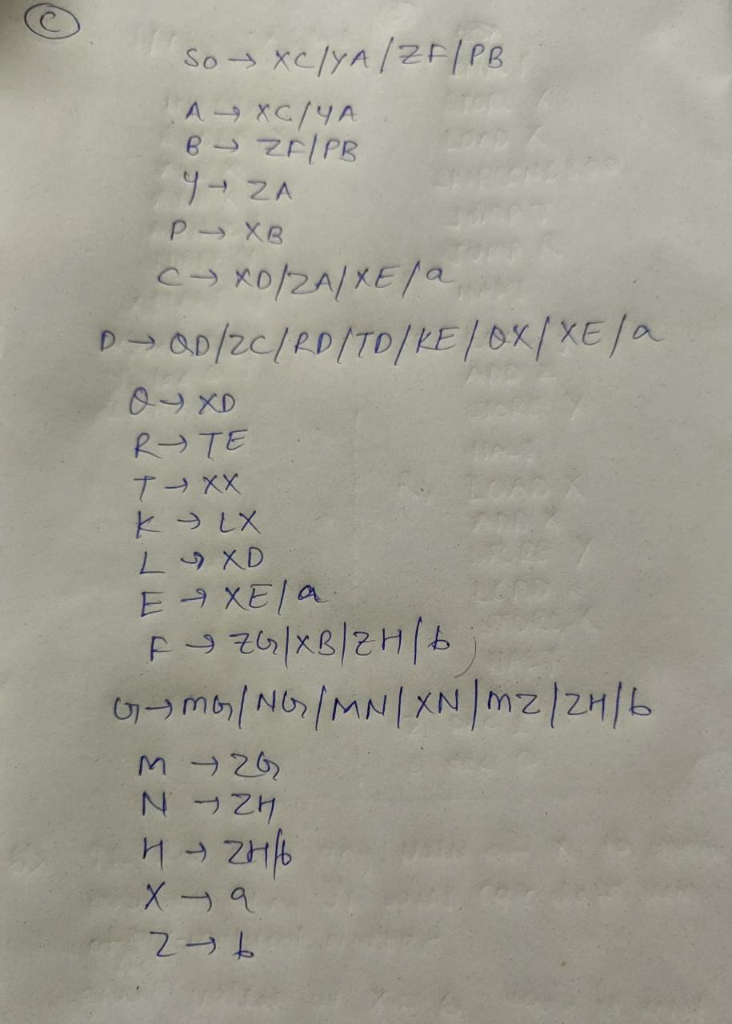 C
So → XC/YA/ZF/PB
A → XC/YA
B → ZF/PB
Y → ZA
P → XB
C → XD/ZA/XE/a
D → QD/ZC/RD/TD/KE/QX/XE/a
Q → XD
R → TE
T → XX
K → LX
L → XD
E → XE/a
F → ZG/XB/ZH/b
G → MG/NG/MN/XN/MZ/ZH/b
M → ZG
N → ZH
H → ZH/b
X → a
Z → b